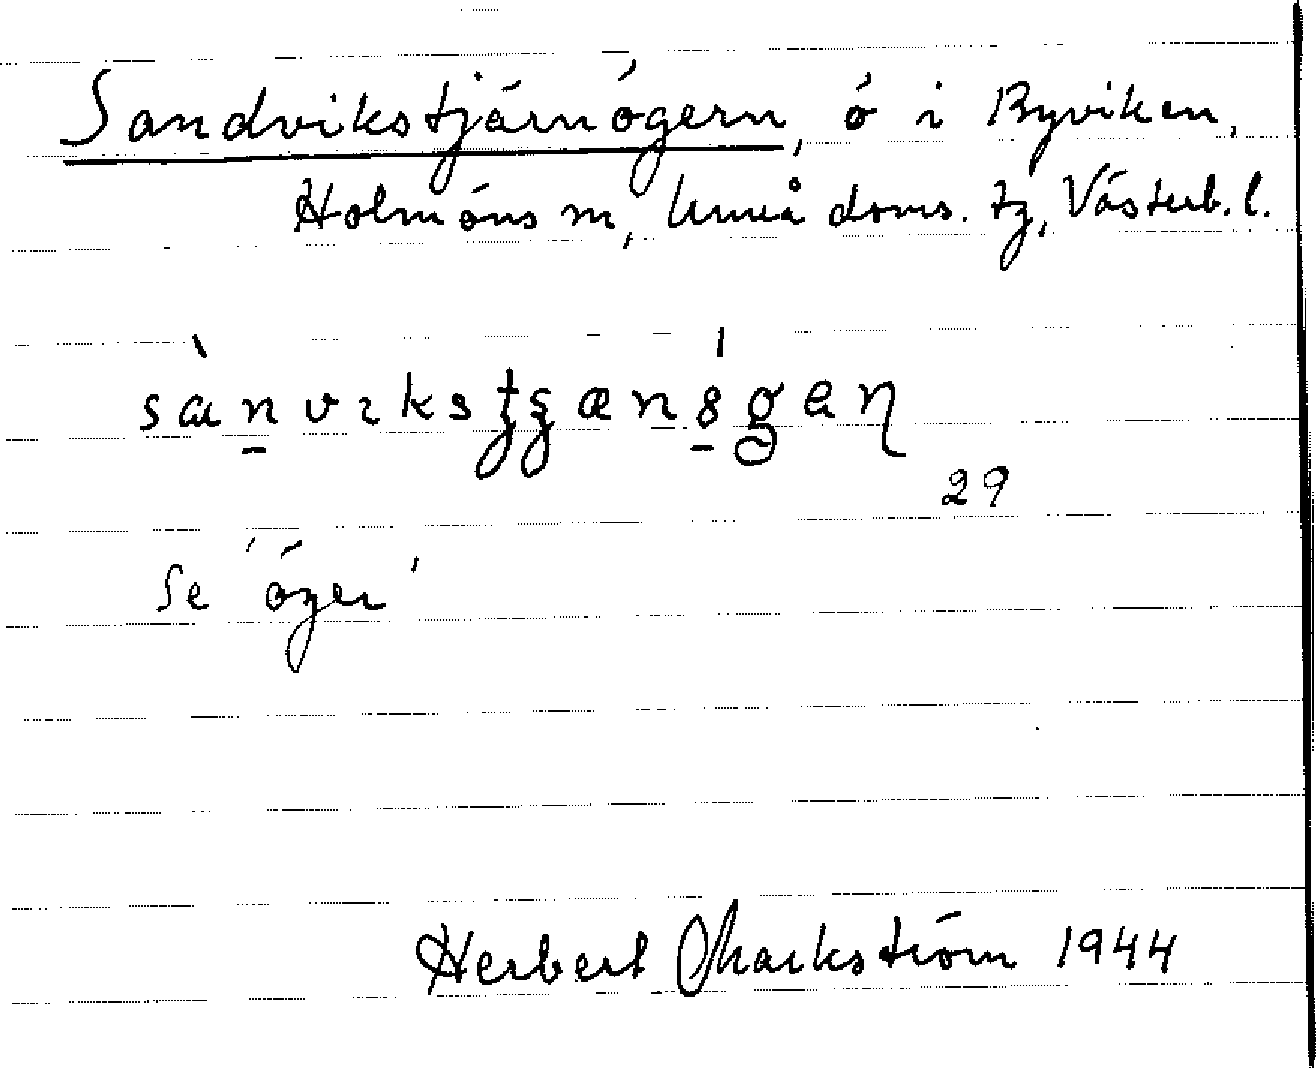 Sandvikstjärnögern, ö i Byviken,
Holmöns sn, Umeå doms. tg, Västerb. l.
29
Se 'öger'
Herbert Markström 1944